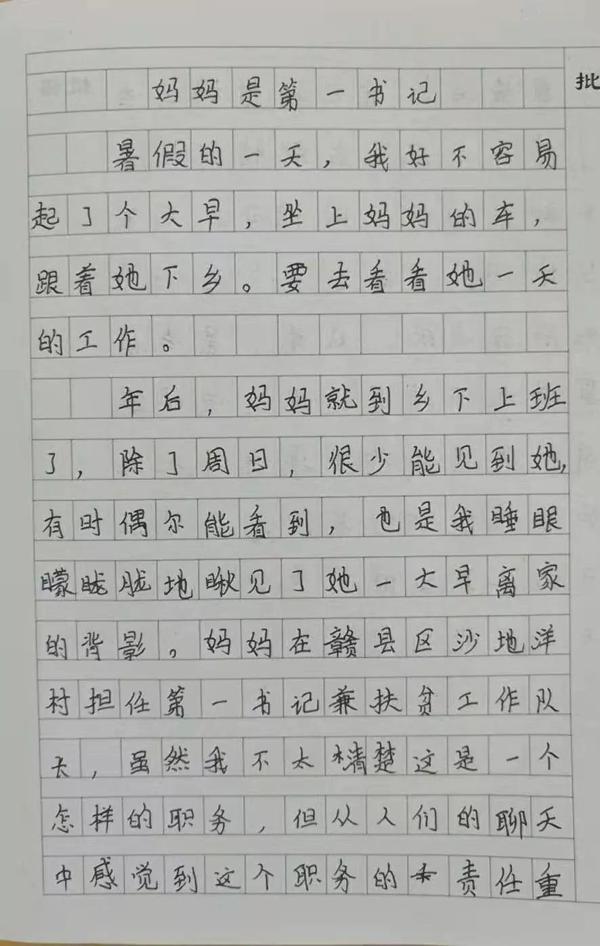 妈妈是第一书记
批
暑假的一天，我好不容易
起了个大早，坐上妈妈的车，
跟着她下乡。要去看看她一天
的工作。
年后，妈妈就到乡下上班
了，除了周日，很少能见到她，
有时偶尔能看到，也是我睡眼
矇眬眬地瞅见了她一大早离家
的背影。妈妈在赣县区沙地洋
村担任第一书记兼扶贫工作队
长，虽然我不太清楚这是一个
怎样的职务，但从人们的聊天
中感觉到这个职务的责任重